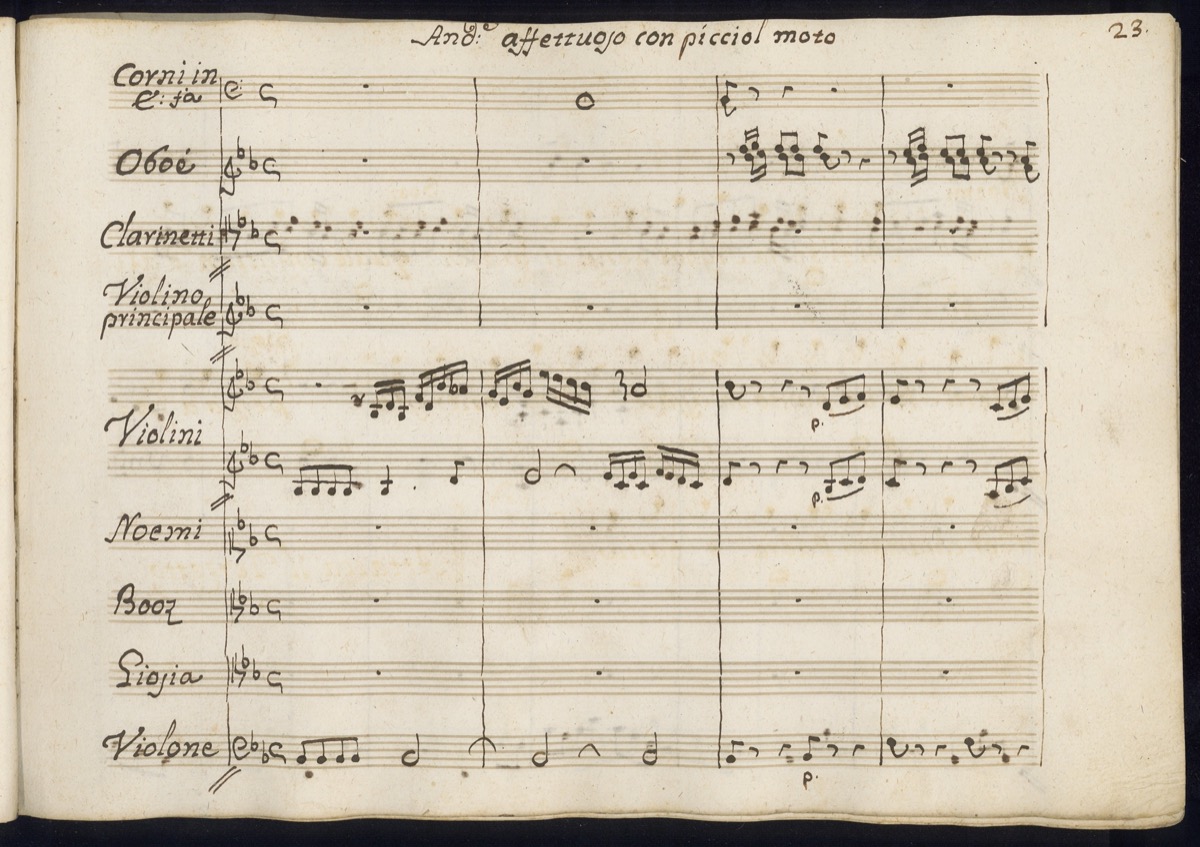 And:e affettuoso con picciol moto
23.
Corni in
E: fa
Oboè
Clarinetti
Violino
principale
Violini
p.
p.
Noemi
Booz
Giosia
Violone
p.